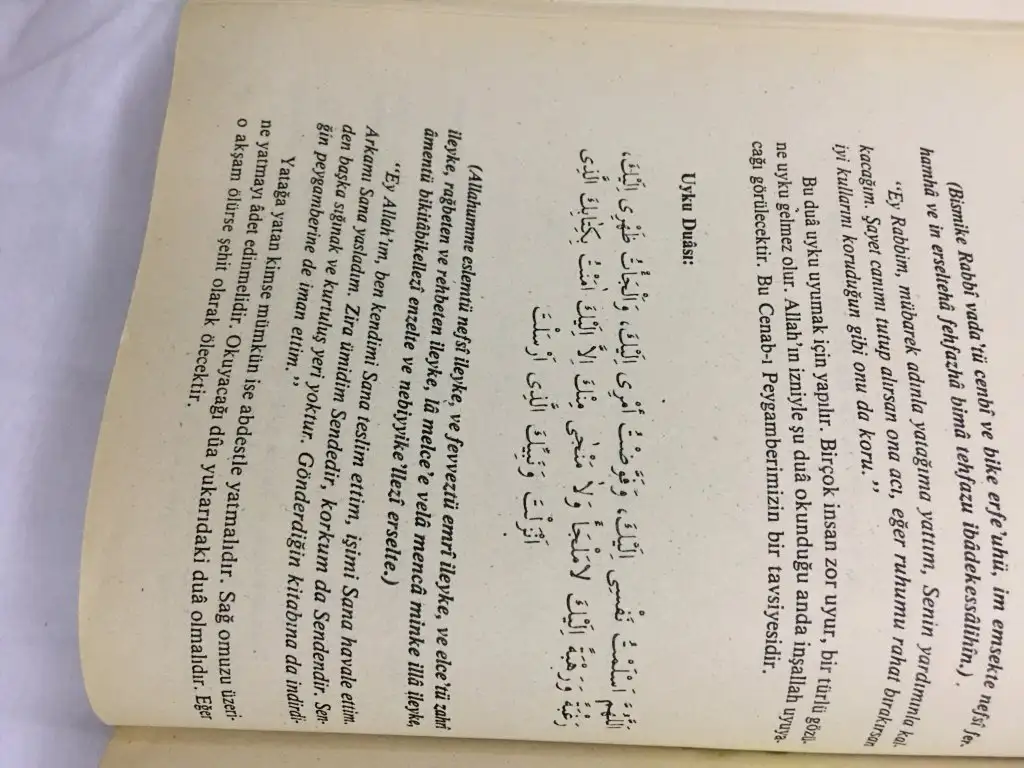 (Bismike Rabbî vada'tü cenbî ve bike erfe'uhü, im emsekte nefsî fer-
hamhâ ve in erseltehâ fehfazhâ bimâ tehfazu ibâdekessâlihîn.)
“Ey Rabbim, mübarek adınla yatağıma yattım, Senin yardımınla kal-
kacağım. Şayet canımı tutup alırsan ona acı, eğer ruhumu rahat bırakırsan
iyi kullarını koruduğun gibi onu da koru.”
Bu duâ uyku uyumak için yapılır. Birçok insan zor uyur, bir türlü gözü-
ne uyku gelmez olur. Allah'ın izniyle şu duâ okunduğu anda inşallah uyuya-
cağı görülecektir. Bu Cenab-ı Peygamberimizin bir tavsiyesidir.
Uyku Duâsı:
اَللّٰهُمَّ اَسْلَمْتُ نَفْسِى اِلَيْكَ، وَفَوَّضْتُ اَمْرِى اِلَيْكَ، وَاَلْجَأْتُ ظَهْرِى اِلَيْكَ،
رَغْبَةً وَرَهْبَةً اِلَيْكَ لاَمَلْجَأَ وَلاَ مَنْجٰى مِنْكَ اِلاَّ اِلَيْكَ اٰمَنْتُ بِكِتَابِكَ الَّذِى
اَنْزَلْتَ وَنَبِيِّكَ الَّذِى اَرْسَلْتَ
(Allahumme eslemtü nefsî ileyke, ve fevveztü emrî ileyke, ve elce'tü zahrî
ileyke, rağbeten ve rehbeten ileyke, lâ melce'e velâ mencâ minke illâ ileyke,
âmentü bikitâbikellezî enzelte ve nebiyyike'llezî erselte.)
“Ey Allah'ım, ben kendimi Sana teslim ettim, işimi Sana havale ettim.
Arkamı Sana yasladım. Zira ümidim Sendedir, korkum da Sendendir. Sen-
den başka sığınak ve kurtuluş yeri yoktur. Gönderdiğin kitabına da indirdi-
ğin peygamberine de iman ettim.”
Yatağa yatan kimse mümkün ise abdestle yatmalıdır. Sağ omuzu üzeri-
ne yatmayı âdet edinmelidir. Okuyacağı dûa yukarıdaki duâ olmalıdır. Eğer
o akşam ölürse şehit olarak ölecektir.